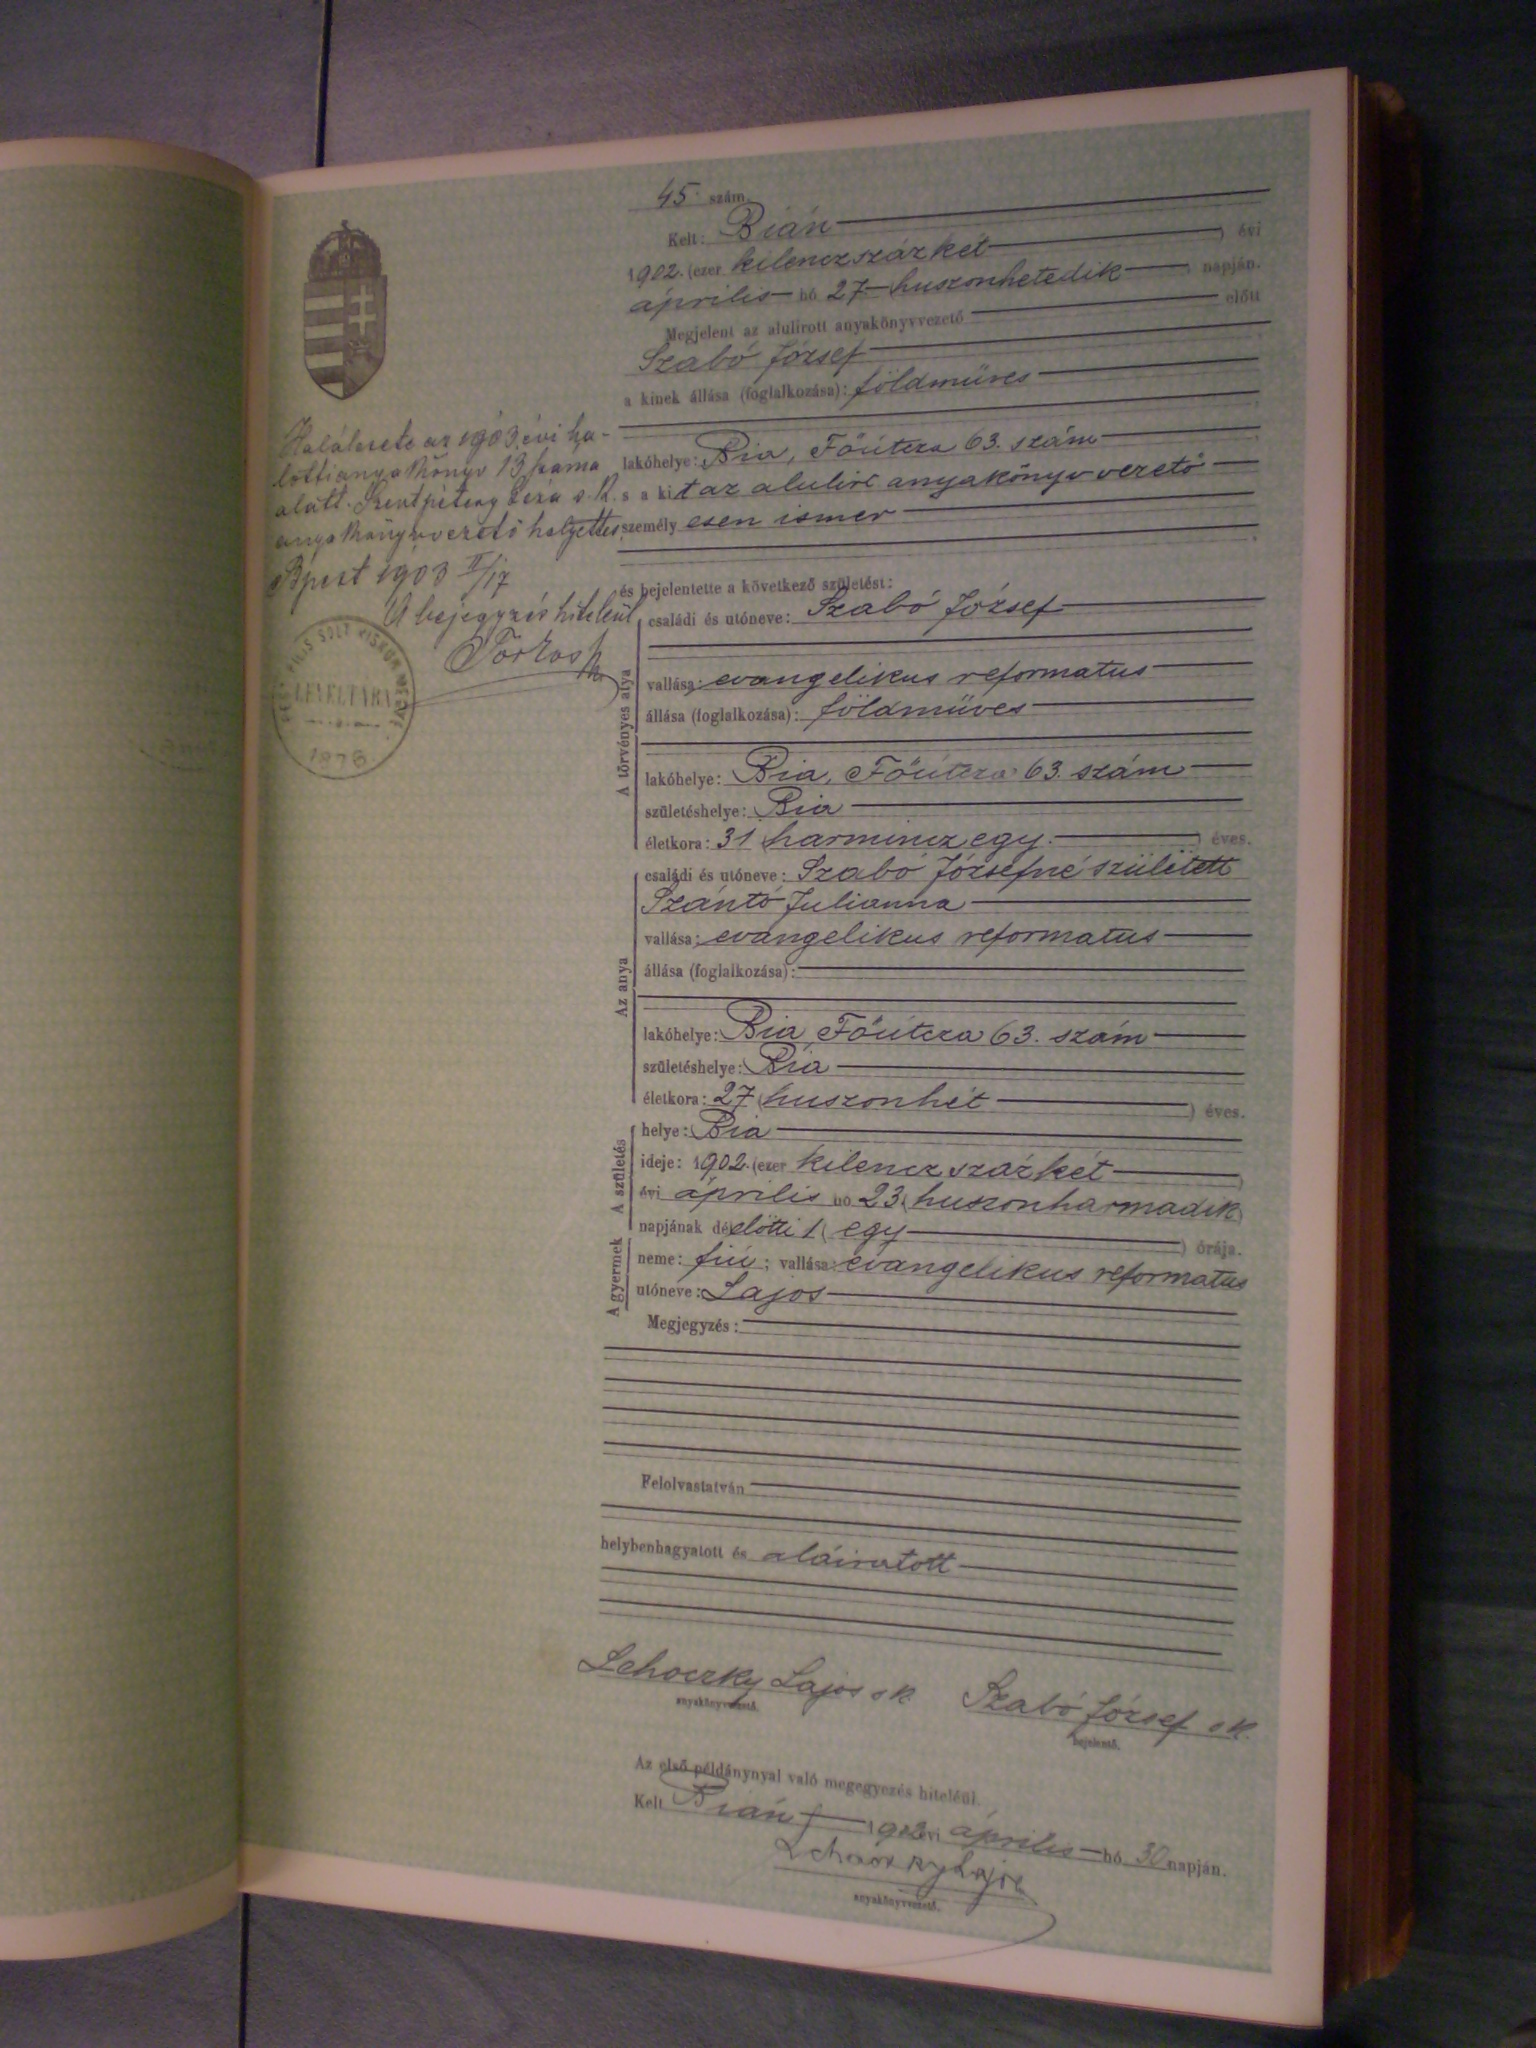 45 szám.
Kelt: Bián
1902. (ezer kilenczszázkét ) évi
április hó 27 huszonhetedik napján.
Megjelent az alulirott anyakönyvvezető előtt
Szabó József
a kinek állása (foglalkozása): földmüves
lakóhelye: Bia, Főútcza 63. szám
s a kit az alulirt anyakönyvvezető
személyesen ismer
és bejelentette a következő születést:
A törvényes atya
családi és utóneve: Szabó József
vallása: evangelikus reformatus
állása (foglalkozása): földmüves
lakóhelye: Bia, Főútcza 63. szám
születéshelye: Bia
életkora: 31 (harminczegy ) éves.
Az anya
családi és utóneve: Szabó Józsefné született
Szántó Julianna
vallása: evangelikus reformatus
állása (foglalkozása):
lakóhelye: Bia, Főútcza 63. szám
születéshelye: Bia
életkora: 27 (huszonhét ) éves.
A születés
helye: Bia
ideje: 1902. (ezer kilenczszázkét )
évi április hó 23 (huszonharmadik)
napjának délelőtti 1 ( egy ) órája.
A gyermek
neme: fiú; vallása: evangelikus reformatus
utóneve: Lajos
Megjegyzés:
Felolvastatván
helybenhagyatott és aláiratott
Lehoczky Lajos sk Szabó József sk.
anyakönyvvezető. bejelentő.
Az első példánynyal való megegyezés hiteléül.
Kelt Bián 1902 évi április hó 30 napján.
Lehoczky Lajos
anyakönyvvezető.
Halálesete az 1903. évi ha-
lotti anyakönyv 13 száma
alatt. Szentpétery Géza s. k.
anyakönyvvezető helyettes.
Bpest 1903 II/17
A bejegyzés hiteléül
PEST PILIS SOLT KISKUN MEGYE
LEVÉLTÁRA
1876